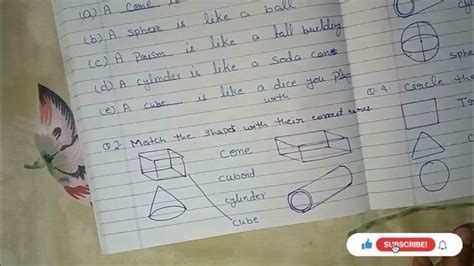 (a) A cone is
(b) A sphere is like a ball
(c) A Prism is like a tall building
(d) A cylinder is like a soda cans
(e) A cube is like a dice you play
with
Q.2 Match the shapes with their correct names
Cone
cuboid
cylinder
cube
Q.4 Circle th
sphe
SUBSCRIBE!